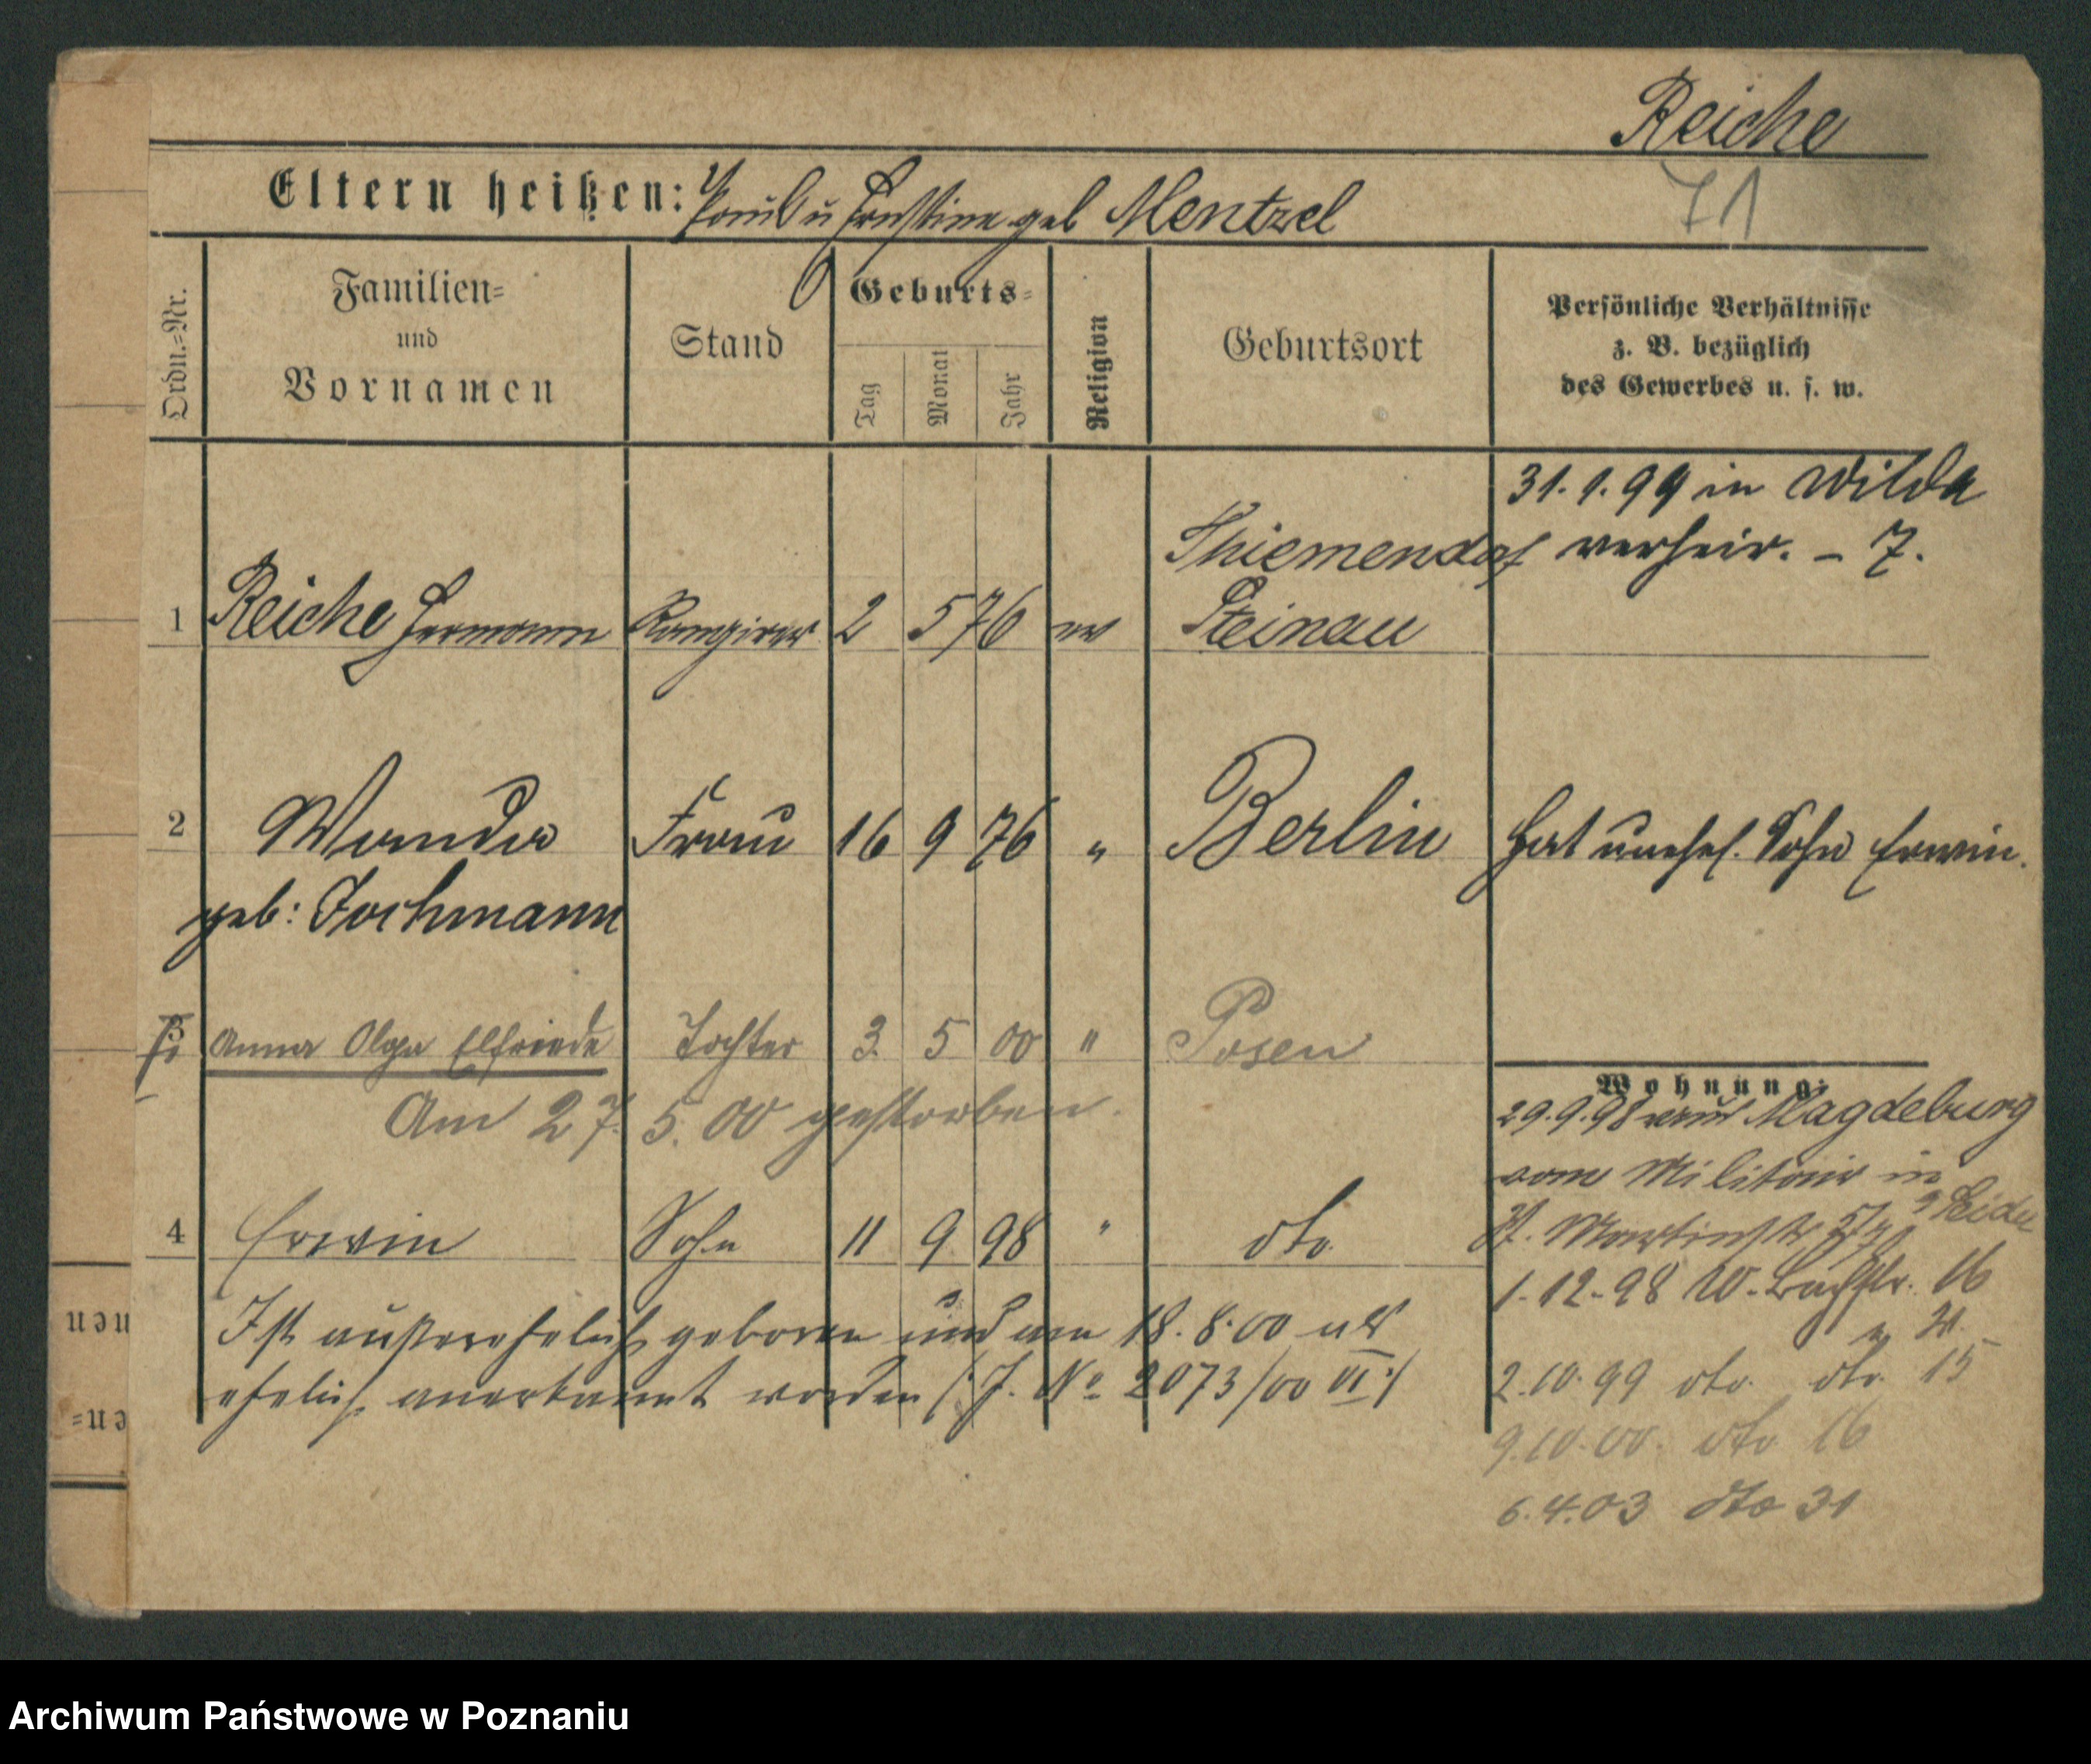 Reiche
71
Eltern heißen: Paul u Ernstine geb Mentzel
Ordn.=Nr.
Familien=
und
Vornamen
Stand
Geburts=
Tag
Monat
Jahr
Religion
Geburtsort
Persönliche Verhältnisse
z. B. bezüglich
des Gewerbes u. s. w.
31.1.99 in Wilda
verheir. – 7.
1 Reiche Hermann Rangirer 2 5 76 ev Thiemendorf
Steinau
2 Wanda Frau 16 9 76 " Berlin hat unehel. Sohn Erwin.
geb: Jochmann
3 Anna Olga Elfriede Tochter 3. 5 00 " Posen
Am 27. 5. 00 gestorben.
4 Erwin Sohn 11 9 98 " dto.
Ist außerehelich geboren und am 18.8.00 als
ehelich anerkannt worden (: J. No 2073/00 VI :)
Wohnung:
29.9.98 von Magdeburg
vom Militair in
St. Martinstr
1.12.98 W. Bachstr. 16
" 21.
2.10.99 dto. dto. 15
9.10.00. dto 16
6.4.03 dto 31
nen
en=
Archiwum Państwowe w Poznaniu